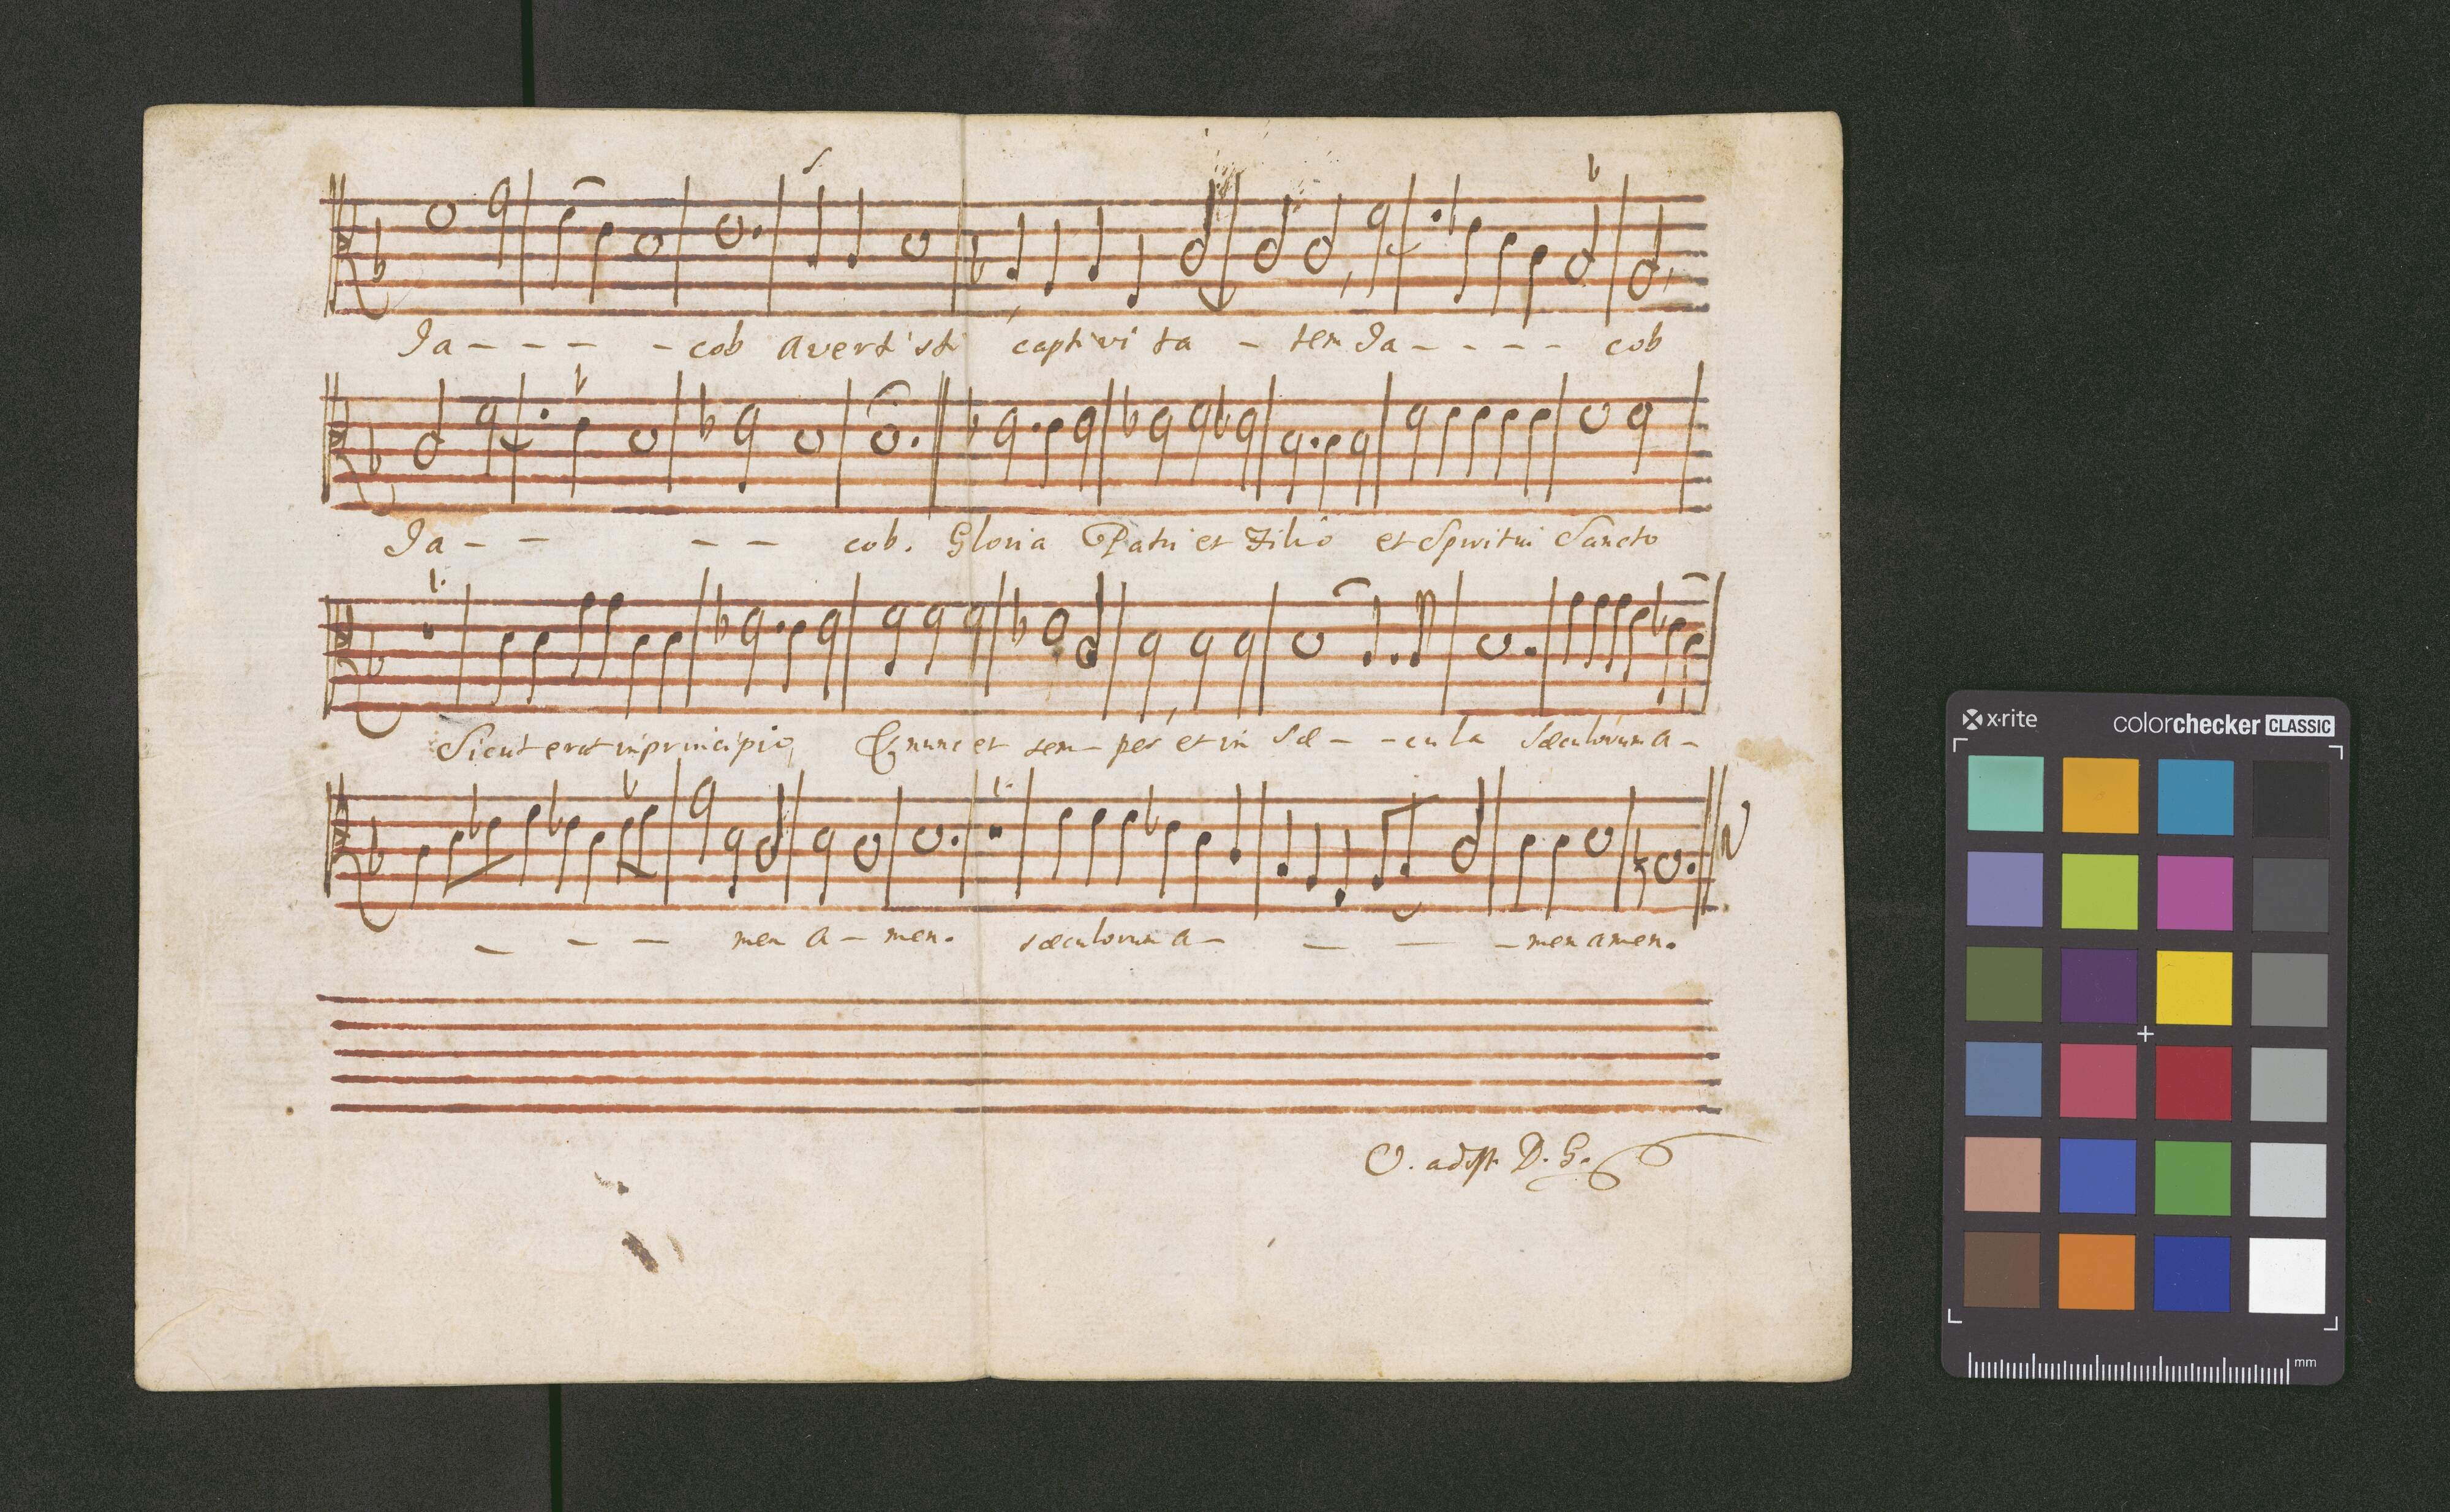 Ja - - - - cob avertisti captivi ta - tem Ja - - - - cob
Ja - - - - cob. Gloria Patri et Filio et Spiritui Sancto
Sicut erat in principio, Et nunc et sem - per et in sæ - - cu la sæculorum a -
- - - men a - men. sæculorum a - - - - men amen.
x·rite colorchecker CLASSIC
mm